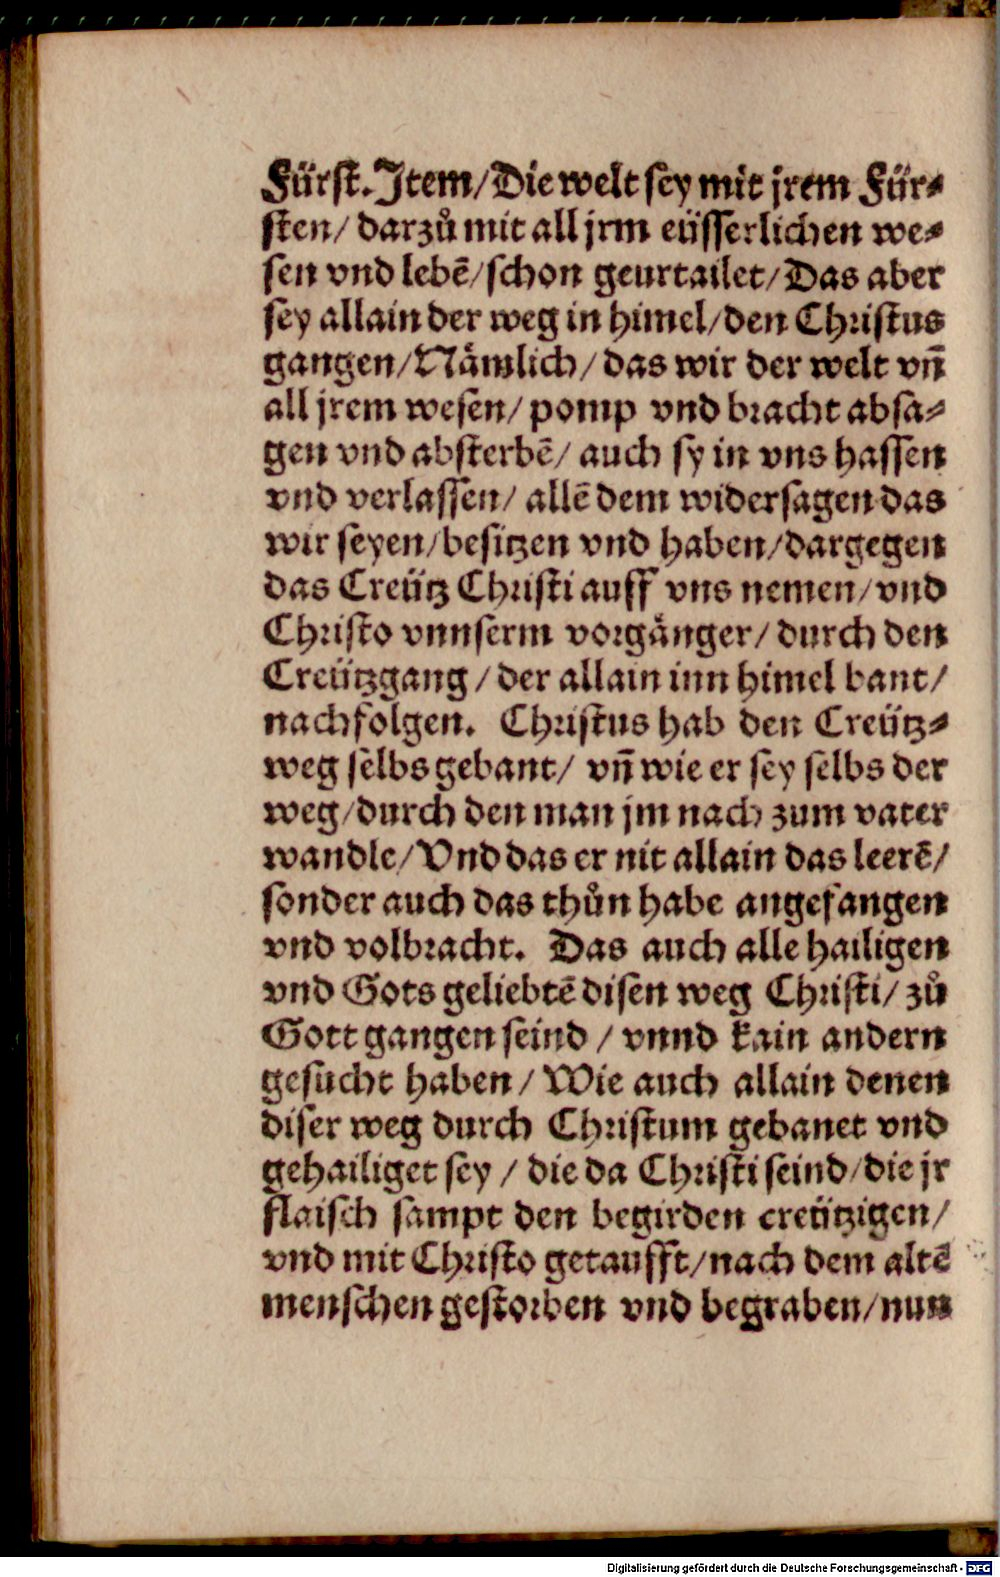 Fürst. Item/Die welt sey mit jrem Für⸗
sten/ darzů mit all jrm eüsserlichen we⸗
sen vnd lebē/schon geurtailet/Das aber
sey allain der weg in himel/den Christus
gangen/Nämlich/ das wir der welt vñ
all jrem wesen/ pomp vnd bracht absa⸗
gen vnd absterbē/ auch sy in vns hassen
vnd verlassen/ allē dem widersagen das
wir seyen/besitzen vnd haben/dargegen
das Creütz Christi auff vns nemen/vnd
Christo vnnserm vorgänger/ durch den
Creützgang /der allain inn himel bant/
nachfolgen. Christus hab den Creütz⸗
weg selbs gebant/ vñ wie er sey selbs der
weg/durch den man jm nach zum vater
wandle/Vnd das er nit allain das leerē/
sonder auch das thůn habe angefangen
vnd volbracht. Das auch alle hailigen
vnd Gots geliebtē disen weg Christi/ zů
Gott gangen seind / vnnd kain andern
gesucht haben/ Wie auch allain denen
diser weg durch Christum gebanet vnd
gehailiget sey / die da Christi seind/die jr
flaisch sampt den begirden creützigen/
vnd mit Christo getaufft/nach dem altē
menschen gestorben vnd begraben/nun
Digitalisierung gefördert durch die Deutsche Forschungsgemeinschaft - DFG